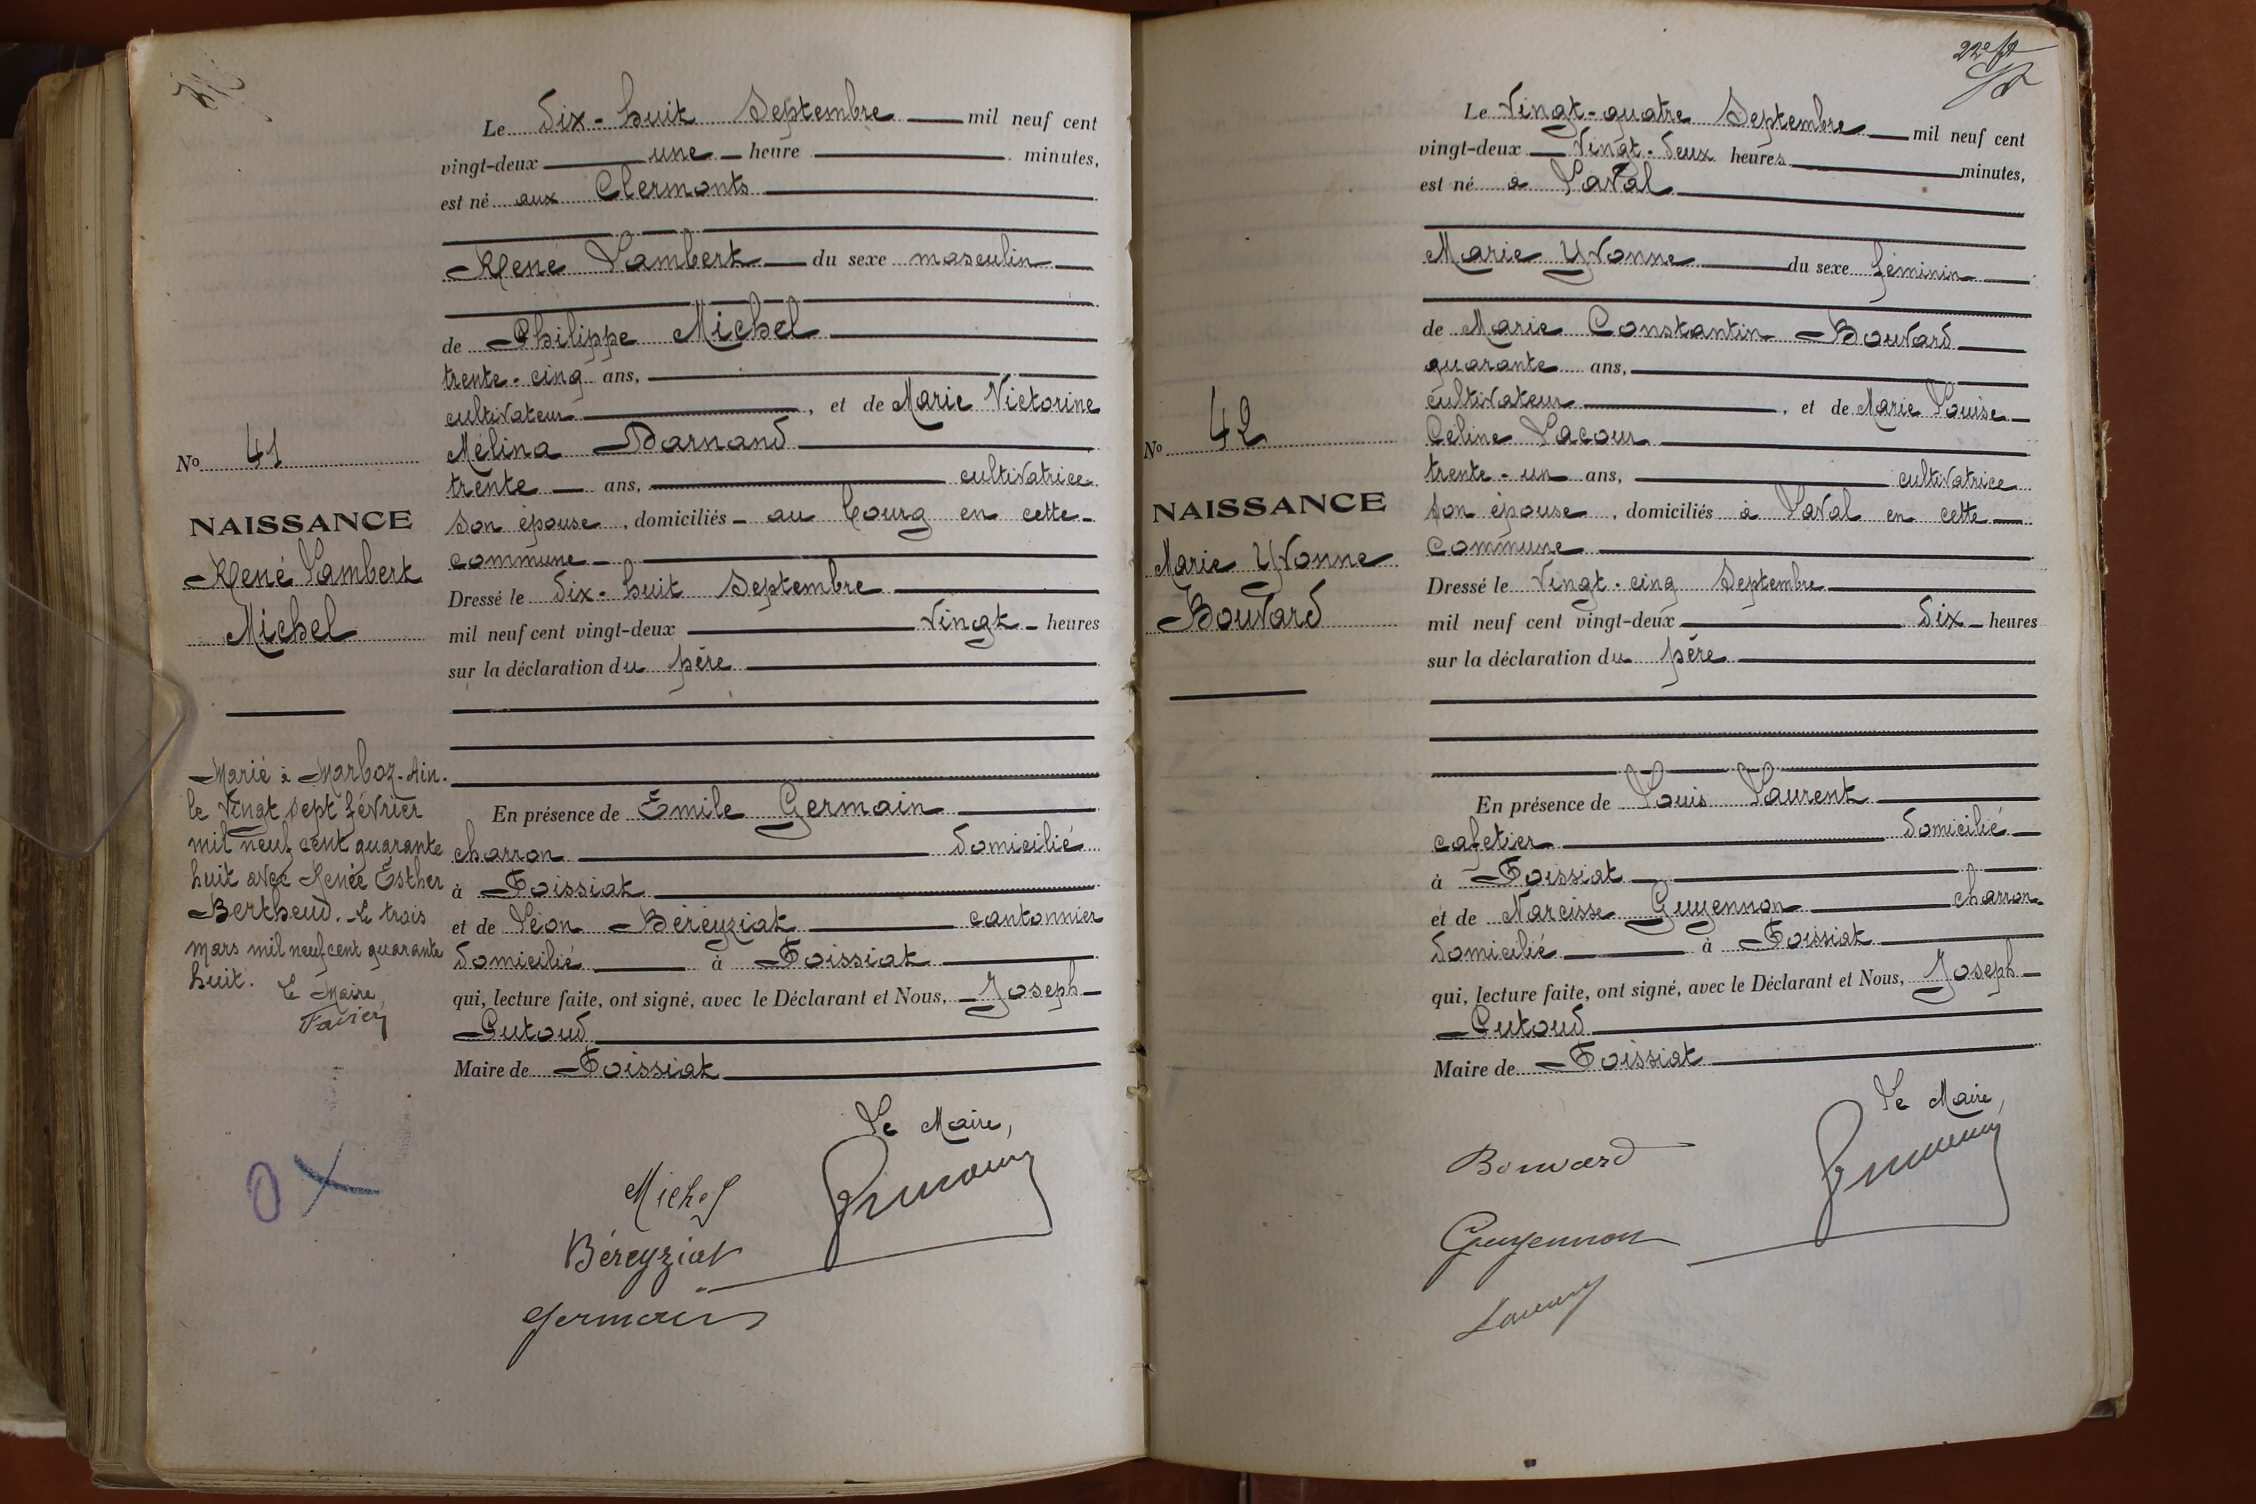 Le Dix-huit Septembre mil neuf cent
vingt-deux une heure minutes,
est né aux Clermonts
René Lambert du sexe masculin
de Philippe Michel
trente-cinq ans,
cultivateur, et de Marie Victorine
Mélina Darnand
trente ans, cultivatrice
son épouse, domiciliés au bourg en cette
commune
Dressé le dix-huit Septembre
mil neuf cent vingt-deux Vingt heures
sur la déclaration du père
En présence de Emile Germain
charron domicilié
à Foissiat
et de Léon Béreyziat cantonnier
domicilié à Foissiat
qui, lecture faite, ont signé, avec le Déclarant et Nous, Joseph
Cutoud
Maire de Foissiat
Le Maire,
Michel
Béreyziat
Germain
No 41
NAISSANCE
René Lambert
Michel
Marié à Marboz-Ain.
le Vingt sept février
mil neuf cent quarante
huit avec Renée Esther
Bertheud. Le trois
mars mil neuf cent quarante
huit.
Le Maire,
Favier
OX
Le Vingt-quatre Septembre mil neuf cent
vingt-deux Vingt-Deux heures minutes,
est né à Laval
Marie Yvonne du sexe féminin
de Marie Constantin Bouvard
quarante ans,
cultivateur, et de Marie Louise
Céline Lacour
trente-un ans, cultivatrice
son épouse, domiciliés à Laval en cette
Commune
Dressé le Vingt-cinq Septembre
mil neuf cent vingt-deux Dix heures
sur la déclaration du père
En présence de Louis Laurent
cafetier domicilié
à Foissiat
et de Narcisse Guyennon charron
domicilié à Foissiat
qui, lecture faite, ont signé, avec le Déclarant et Nous, Joseph
Cutoud
Maire de Foissiat
Le Maire,
Bouvard
Guyennon
No 42
NAISSANCE
Marie Yvonne
Bouvard